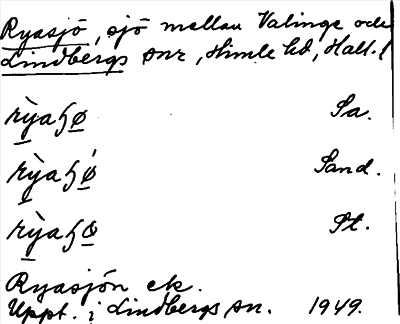 Ryasjö, sjö mellan Valinge och
Lindbergs snr, Himle hd, Hall.l
rỳaɧø Sa.
rỳaɧǿ Sand.
rỳaɧø St.
Ryasjön ek.
Uppt. i Lindbergs sn. 1949.